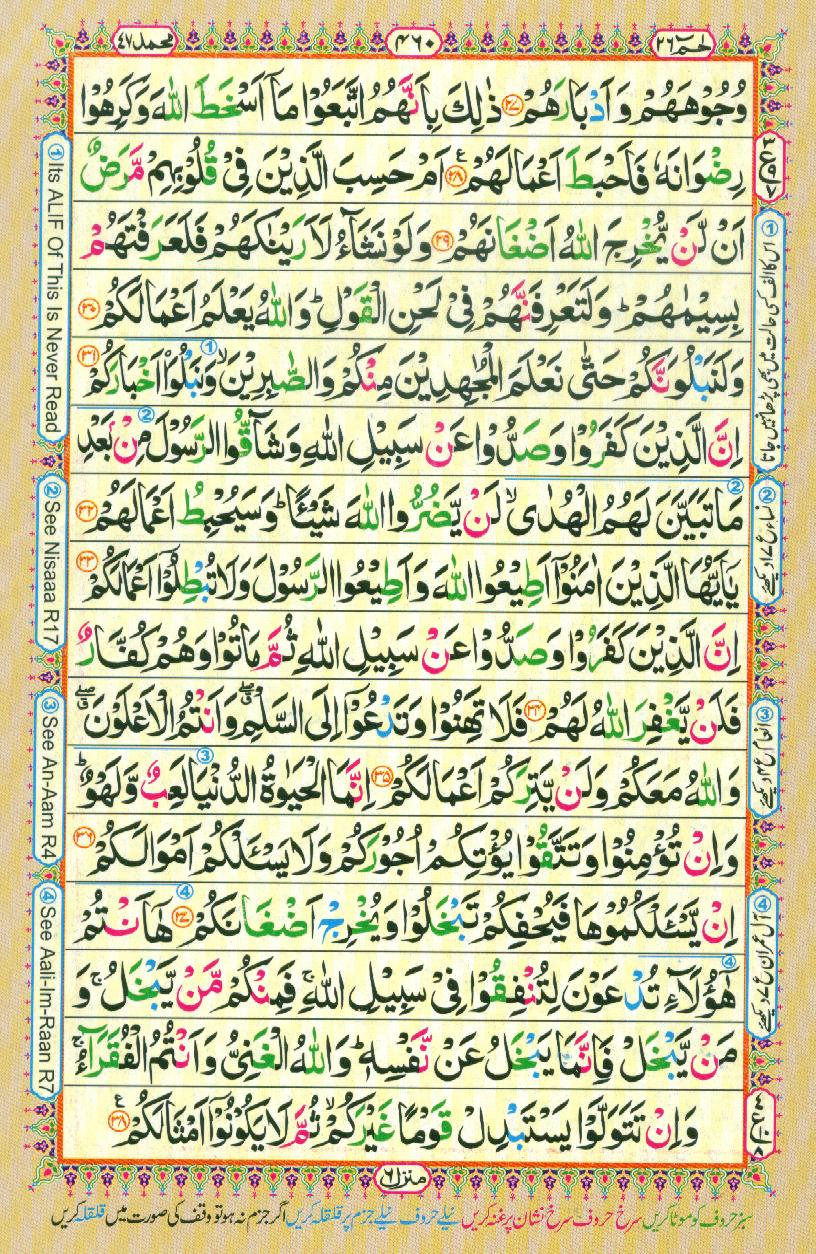 حٰمٓ ٢٦
٤٦٠
محمد ٤٧
وُجُوۡهَهُمۡ وَاَدۡبَارَهُمۡ ﴿۲۷﴾ ذٰلِكَ بِاَنَّهُمُ اتَّبَعُوۡا مَاۤ اَسۡخَطَ اللّٰهَ وَكَرِهُوۡا
رِضۡوَانَهٗ فَاَحۡبَطَ اَعۡمَالَهُمۡ ﴿۲۸﴾ اَمۡ حَسِبَ الَّذِيۡنَ فِىۡ قُلُوۡبِهِمۡ مَّرَضٌ
اَنۡ لَّنۡ يُّخۡرِجَ اللّٰهُ اَضۡغَانَهُمۡ ﴿۲۹﴾ وَلَوۡ نَشَآءُ لَاَرَيۡنٰكَهُمۡ فَلَعَرَفۡتَهُمۡ
بِسِيۡمٰهُمۡ‌ؕ وَلَتَعۡرِفَنَّهُمۡ فِىۡ لَحۡنِ الۡقَوۡلِ‌ؕ وَاللّٰهُ يَعۡلَمُ اَعۡمَالَكُمۡ ﴿۳۰﴾
وَلَنَبۡلُوَنَّكُمۡ حَتّٰى نَعۡلَمَ الۡمُجٰهِدِيۡنَ مِنۡكُمۡ وَالصّٰبِرِيۡنَ ۙ وَنَبۡلُوَا۟ ① اَخۡبَارَكُمۡ ﴿۳۱﴾
اِنَّ الَّذِيۡنَ كَفَرُوۡا وَصَدُّوۡا عَنۡ سَبِيۡلِ اللّٰهِ وَشَآقُّوا الرَّسُوۡلَ مِنۡۢ بَعۡدِ ②
مَا تَبَيَّنَ لَهُمُ الۡهُدٰىۙ لَنۡ يَّضُرُّوا اللّٰهَ شَيۡـئًاؕ وَسَيُحۡبِطُ اَعۡمَالَهُمۡ ﴿۳۲﴾
يٰۤاَيُّهَا الَّذِيۡنَ اٰمَنُوۡۤا اَطِيۡعُوا اللّٰهَ وَاَطِيۡعُوا الرَّسُوۡلَ وَلَا تُبۡطِلُوۡۤا اَعۡمَالَكُمۡ ﴿۳۳﴾
اِنَّ الَّذِيۡنَ كَفَرُوۡا وَصَدُّوۡا عَنۡ سَبِيۡلِ اللّٰهِ ثُمَّ مَاتُوۡا وَهُمۡ كُفَّارٌ
فَلَنۡ يَّغۡفِرَ اللّٰهُ لَهُمۡ ﴿۳۴﴾ فَلَا تَهِنُوۡا وَتَدۡعُوۡۤا اِلَى السَّلۡمِ ۖ وَاَنۡتُمُ الۡاَعۡلَوۡنَ ۖ
وَاللّٰهُ مَعَكُمۡ وَلَنۡ يَّتِرَكُمۡ اَعۡمَالَكُمۡ ﴿۳۵﴾ اِنَّمَا الۡحَيٰوةُ الدُّنۡيَا ③ لَعِبٌ وَّلَهۡوٌ‌ؕ
وَاِنۡ تُؤۡمِنُوۡا وَتَتَّقُوۡا يُؤۡتِكُمۡ اُجُوۡرَكُمۡ وَلَا يَسۡـئَلۡكُمۡ اَمۡوَالَكُمۡ ﴿۳۶﴾
اِنۡ يَّسۡـئَلۡكُمُوۡهَا فَيُحۡفِكُمۡ تَبۡخَلُوۡا وَيُخۡرِجۡ اَضۡغَانَكُمۡ ﴿۳۷﴾ ④ هٰۤاَنۡتُمۡ
هٰٓؤُلَآءِ تُدۡعَوۡنَ لِتُنۡفِقُوۡا فِىۡ سَبِيۡلِ اللّٰهِ‌ۚ فَمِنۡكُمۡ مَّنۡ يَّبۡخَلُ‌ۚ وَ
مَنۡ يَّبۡخَلۡ فَاِنَّمَا يَبۡخَلُ عَنۡ نَّفۡسِهٖ‌ؕ وَاللّٰهُ الۡغَنِىُّ وَاَنۡتُمُ الۡفُقَرَآءُ‌ۚ
وَاِنۡ تَتَوَلَّوۡا يَسۡتَبۡدِلۡ قَوۡمًا غَيۡرَكُمۡۙ ثُمَّ لَا يَكُوۡنُوۡۤا اَمۡثَالَكُمۡ ﴿۳۸﴾
① Its ALIF Of This Is Never Read
② See Nisaaa R17
③ See An-Aam R4
④ See Aali-Im-Raan R7
① اس کا الف کسی حالت میں بھی پڑھا نہیں جاتا
② نساء ع ١٧ دیکھئے
③ انعام ع ٤ دیکھئے
④ آل عمران ع ٧ دیکھئے
منزل ٦
سبز حروف کو موٹا کریں سرخ حروف سرخ نشان پر غنہ کریں نیلے حروف نیلے جزم پر قلقلہ کریں اگر جزم نہ ہو تو وقف کی صورت میں قلقلہ کریں